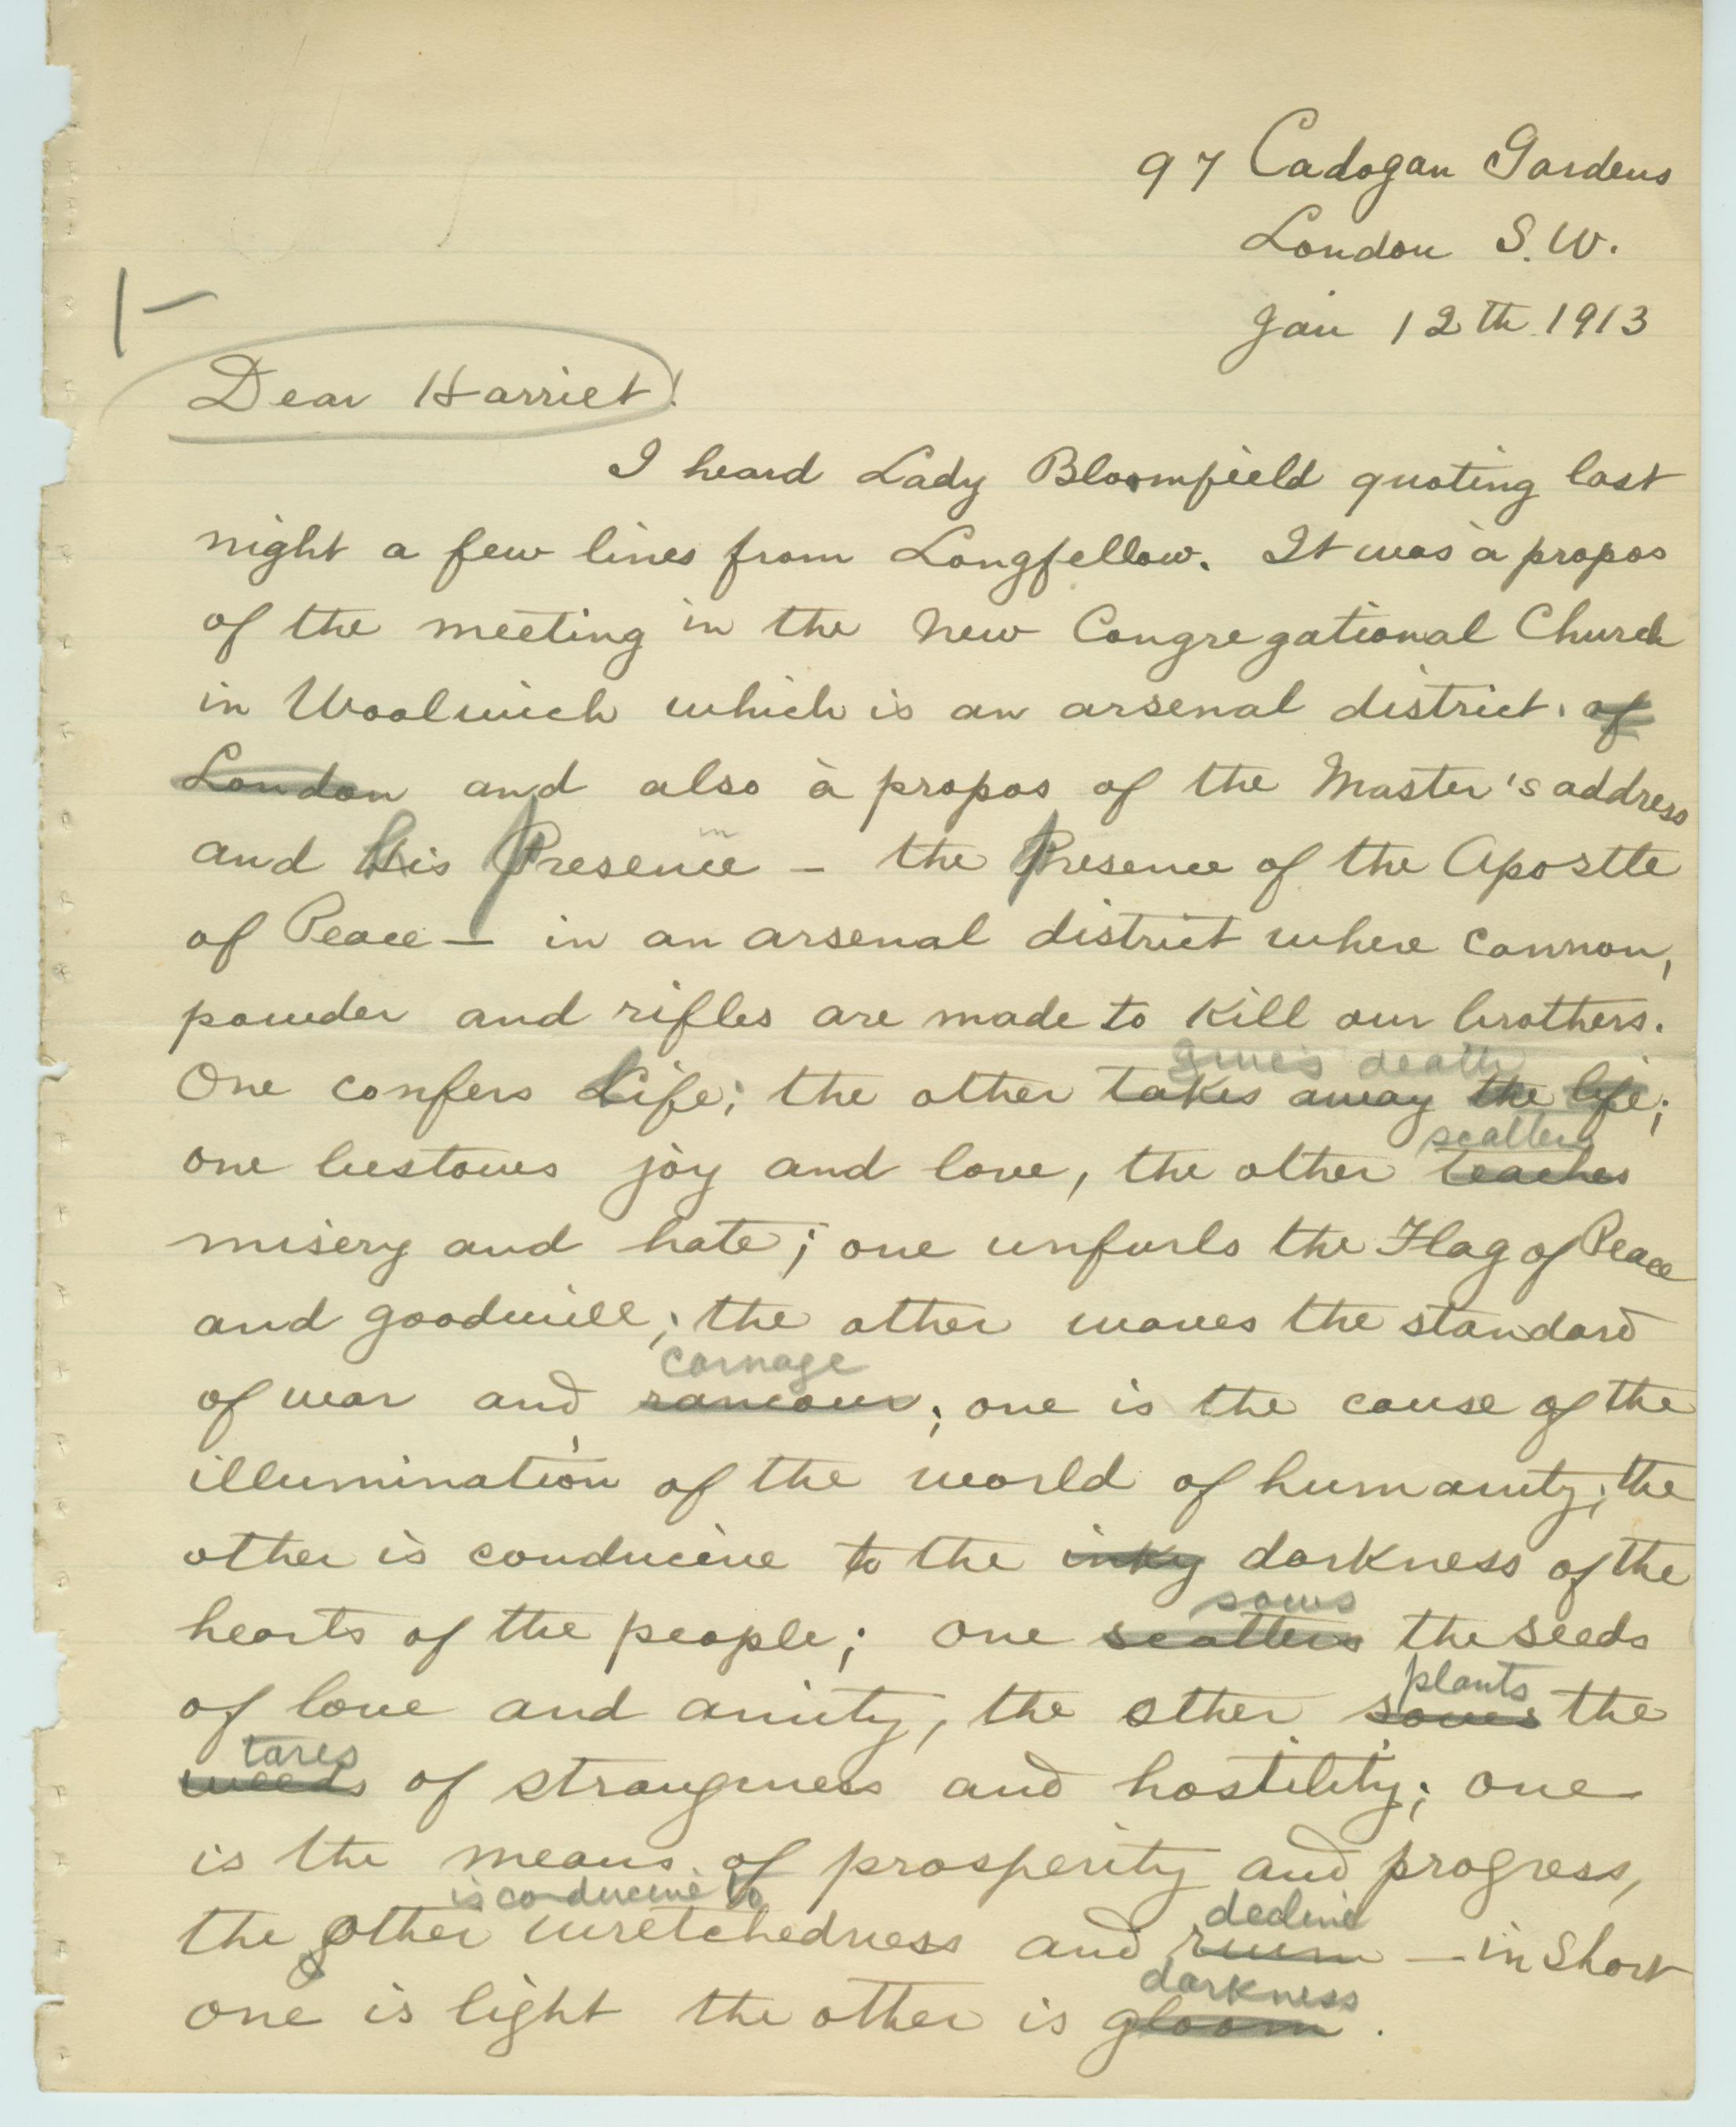 97 Cadogan Gardens
London S.W.
Jan 12th 1913
1-
Dear Harriet!
I heard Lady Bloomfield quoting last
night a few lines from Longfellow. It was à propos
of the meeting in the New Congregational Church
in Woolwich which is an arsenal district. of
London and also à propos of the Master's address
and His Presence – the Presence of the Apostle
of Peace – in an arsenal district where cannon,
powder and rifles are made to kill our brothers.
gives death
One confers Life; the other takes away the life;
scatters
one bestows joy and love, the other teaches
misery and hate; one unfurls the Flag of Peace
and goodwill; the other waves the standard
carnage
of war and rancour; one is the cause of the
illumination of the world of humanity; the
other is conducive to the inky darkness of the
sows
hearts of the people; one scatters the seeds
plants
of love and amity, the other sows the
tares
weeds of strangness and hostility; one
is the means of prosperity and progress,
is conducive to decline
the other wretchedness and ruin – in short
darkness
one is light the other is gloom.